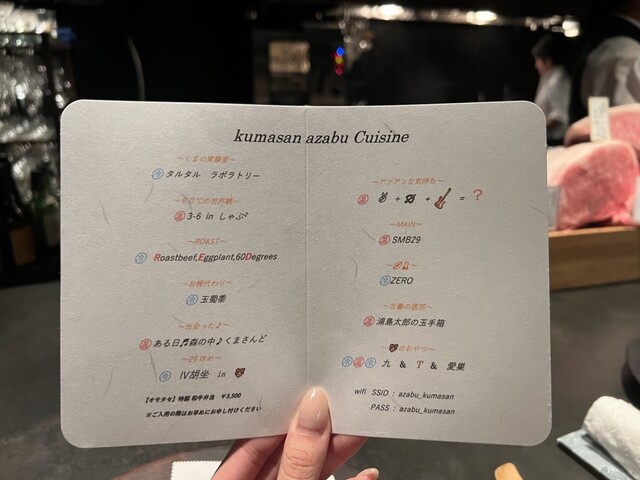 kumasan azabu Cuisine
〜くまの実験室〜
冷 タルタル ラボラトリー
〜60℃の世界観〜
温 3-6 in しゃぶ²
〜ROAST〜
冷 Roastbeef,Eggplant,60Degrees
〜お椀代わり〜
冷 玉蜀黍
〜出会った♪〜
温 ある日♬森の中♪くまさんど
〜29休め〜
冷 Ⅳ胡坐 in 🐻
【オモタセ】特製 和牛弁当 ¥3,500
※ご入用の際はお早めにお申し付けください
〜アツアツな気持ち〜
+ + 🎸 = ?
〜MAIN〜
温 SMB29
冷 ZERO
浦島太郎の玉手箱
🐻のおやつ〜
冷 温 冷 九 & T & 愛巣
wifi SSID : azabu_kumasan
PASS : azabu_kumasan